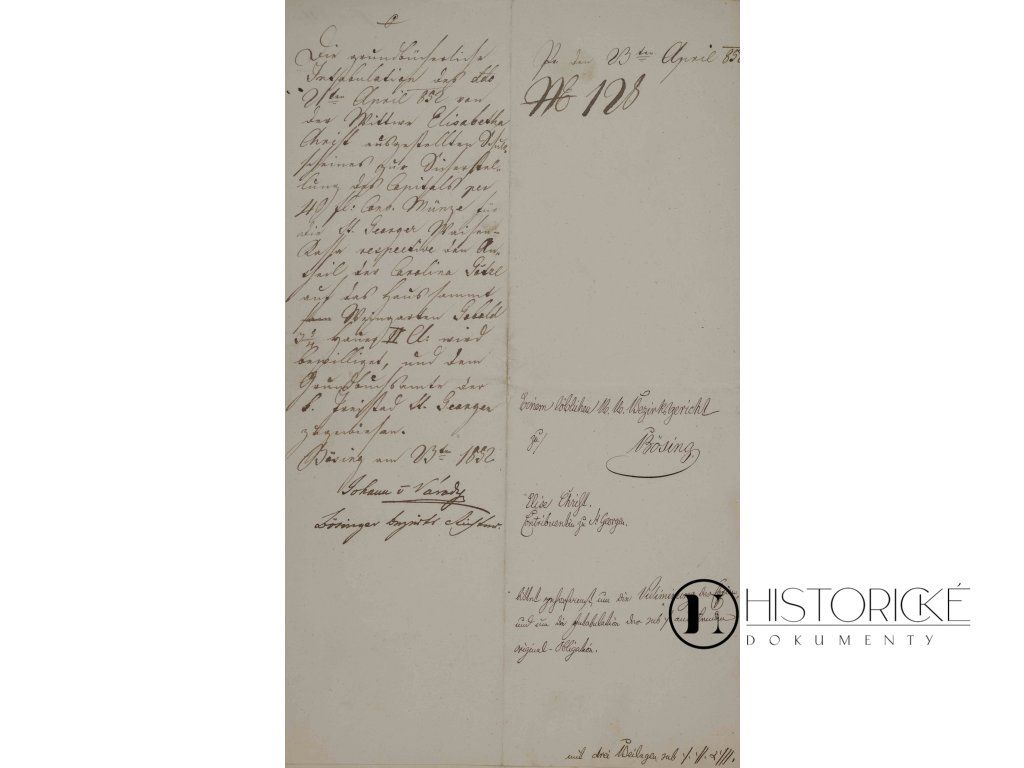 Die grundbücherliche
Intabulation des ddo
April 852 von
der Wittwe Elisabetha
Christ ausgestellten Schuld-
scheines zur Sicherstel-
lung des Capitals per
40 fl: Conv. Münze für
die St. Georger Waisen-
Kassa respective den An-
theil der Carolina Götzl
auf das Haus sammt
Weingarten
Hauer VI Cl: wird
bewilliget, und dem
Grundbuchsamte der
k. Freystad St. Georgen
Bösing am 1852
Johann v Várady
Bösinger bezirks Richter
Pr den April 852
No 128
Einem löblichen K. K. Bezirksgericht
zu/
Bösing
Elise Christ.
Contribuentin zu St Georgen.
bittet gehorsamst um die Vidimirung der
und um die Intabulation der sub
original-Obligation.
mit drei Beilagen sub
HISTORICKÉ
DOKUMENTY